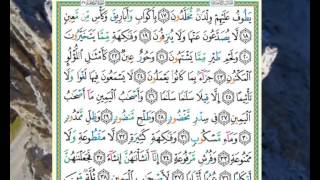 يَطُوفُ عَلَيْهِمْ وِلْدَٰنٌ مُّخَلَّدُونَ ١٧ بِأَكْوَابٍ وَأَبَارِيقَ وَكَأْسٍ مِّن مَّعِينٍ
١٨ لَّا يُصَدَّعُونَ عَنْهَا وَلَا يُنزِفُونَ ١٩ وَفَٰكِهَةٍ مِّمَّا يَتَخَيَّرُونَ
٢٠ وَلَحْمِ طَيْرٍ مِّمَّا يَشْتَهُونَ ٢١ وَحُورٌ عِينٌ ٢٢ كَأَمْثَٰلِ ٱللُّؤْلُوِٕ
ٱلْمَكْنُونِ ٢٣ جَزَآءًۢ بِمَا كَانُوا۟ يَعْمَلُونَ ٢٤ لَا يَسْمَعُونَ فِيهَا لَغْوًا وَلَا
تَأْثِيمًا ٢٥ إِلَّا قِيلًا سَلَٰمًا سَلَٰمًا ٢٦ وَأَصْحَٰبُ ٱلْيَمِينِ مَآ أَصْحَٰبُ ٱلْيَمِينِ
٢٧ فِى سِدْرٍ مَّخْضُودٍ ٢٨ وَطَلْحٍ مَّنضُودٍ ٢٩ وَظِلٍّ مَّمْدُودٍ
٣٠ وَمَآءٍ مَّسْكُوبٍ ٣١ وَفَٰكِهَةٍ كَثِيرَةٍ ٣٢ لَّا مَقْطُوعَةٍ وَلَا
مَمْنُوعَةٍ ٣٣ وَفُرُشٍ مَّرْفُوعَةٍ ٣٤ إِنَّآ أَنشَأْنَٰهُنَّ إِنشَآءً ٣٥ فَجَعَلْنَٰهُنَّ
أَبْكَارًا ٣٦ عُرُبًا أَتْرَابًا ٣٧ لِّأَصْحَٰبِ ٱلْيَمِينِ ٣٨ ثُلَّةٌ مِّنَ